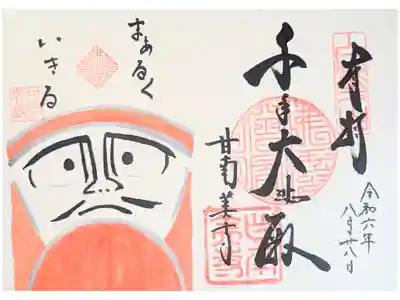 奉拝
令和六年
八月廿八日
千手大悲殿
甘南美寺
まあるく
いきる